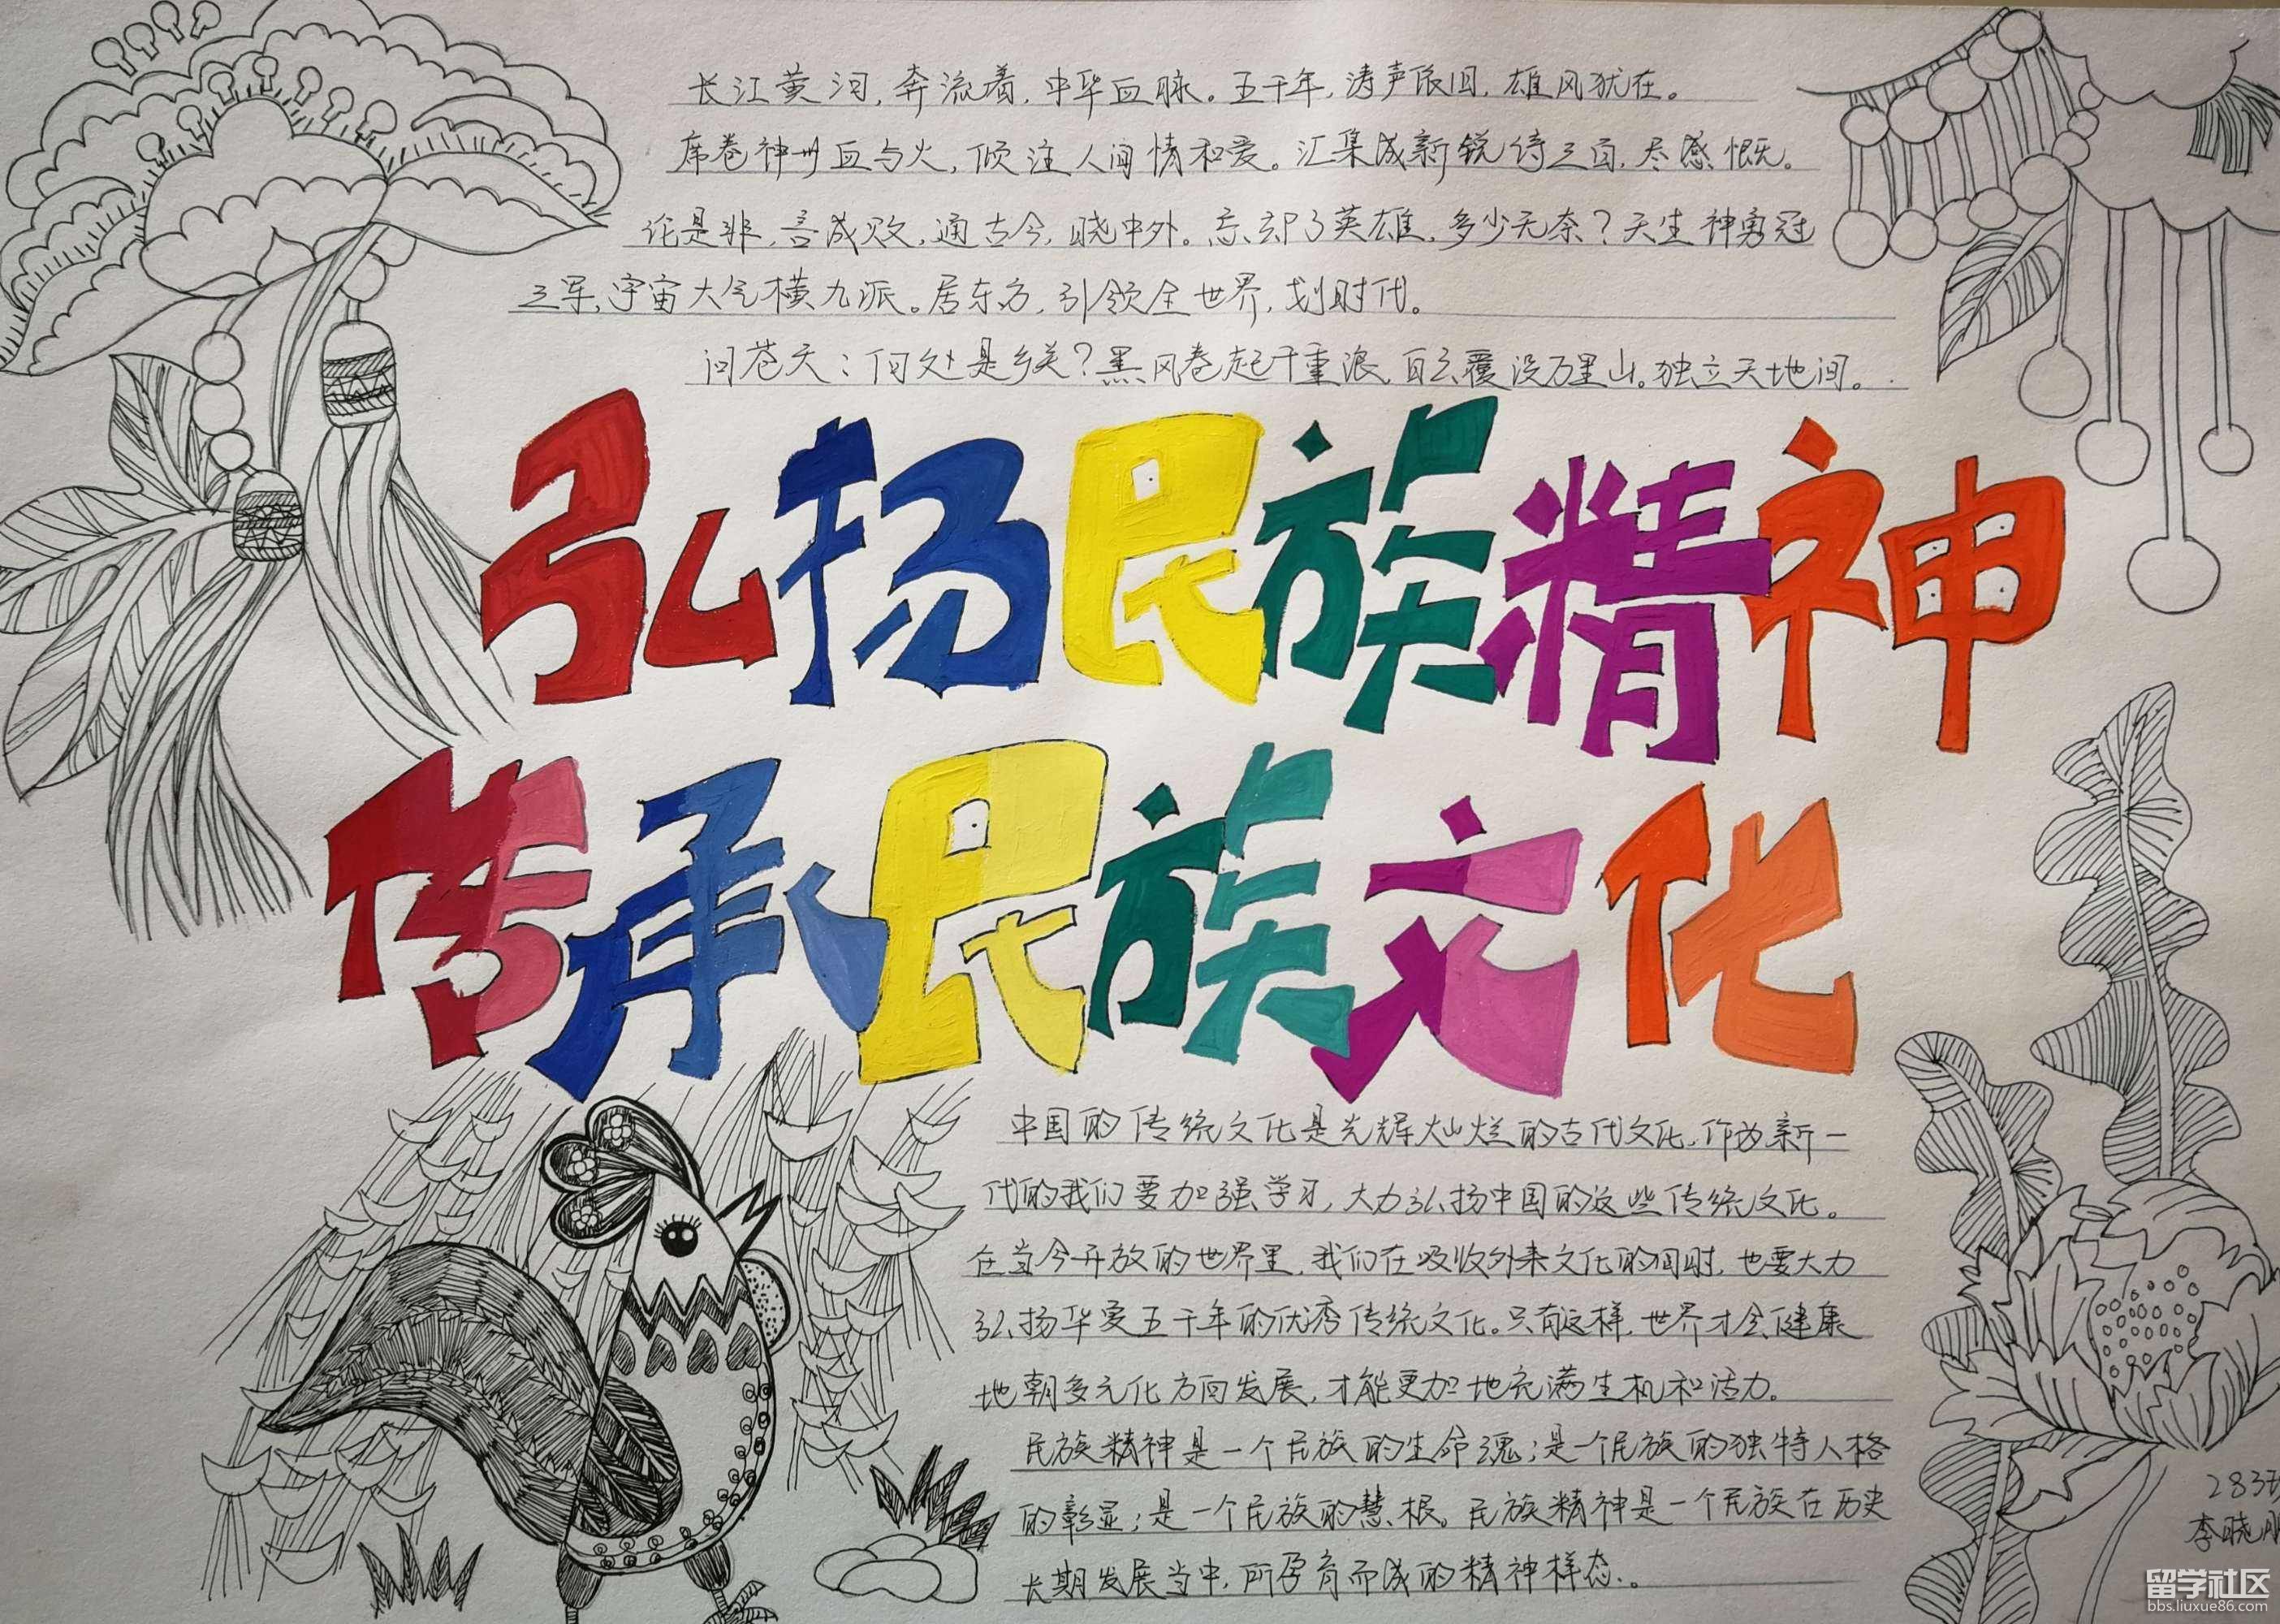 长江黄河,奔流着,中华血脉。五千年,涛声依旧,雄风犹在。
席卷神州血与火,倾注人间情和爱。汇集成新锐诗三百,尽感慨。
论是非,言成败,通古今,晓中外。忘却了英雄,多少无奈?天生神勇冠
三军,宇宙大气横九派。居东方,引领全世界,划时代。
问苍天:何处是乡关?黑风卷起千重浪,白云覆没万里山。独立天地间。
弘扬民族精神
传承民族文化
中国的传统文化是光辉灿烂的古代文化,作为新一
代的我们要加强学习,大力弘扬中国的这些传统文化。
在当今开放的世界里,我们在吸收外来文化的同时,也要大力
弘扬华夏五千年的优秀传统文化。只有这样,世界才会健康
地朝多元化方向发展,才能更加地充满生机和活力。
民族精神是一个民族的生命魂;是一个民族的独特人格
的彰显;是一个民族的慧根。民族精神是一个民族在历史
长期发展当中,所孕育而成的精神样态.。
283
李晓
留学社区
bbs.liuxue86.com